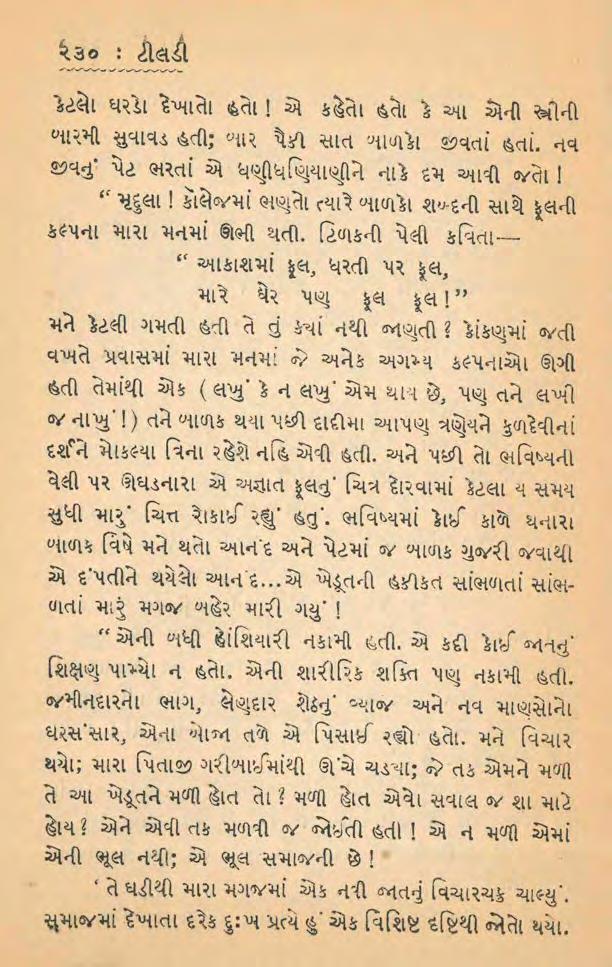 ૨૩૦ : ટીલડી
કેટલો ઘરડો દેખાતો હતો! એ કહેતો હતો કે આ એની સ્ત્રીની
બારમી સુવાવડ હતી; બાર પૈકી સાત બાળકો જીવતાં હતાં. નવ
જીવનું પેટ ભરતાં એ ધણીધણિયાણીને નાકે દમ આવી જતો!
“ મૃદુલા! કૉલેજમાં ભણતો ત્યારે બાળકો શબ્દની સાથે ફૂલની
કલ્પના મારા મનમાં ઊભી થતી. ટિળકની પેલી કવિતા—
“ આકાશમાં ફૂલ, ધરતી પર ફૂલ,
મારે ઘેર પણ ફૂલ ફૂલ!”
મને કેટલી ગમતી હતી તે તું ક્યાં નથી જાણતી? કોંકણમાં જતી
વખતે પ્રવાસમાં મારા મનમાં જે અનેક અગમ્ય કલ્પનાઓ ઊગી
હતી તેમાંથી એક ( લખું કે ન લખું એમ થાય છે, પણ તને લખી
જ નાખું!) તને બાળક થયા પછી દાદીમા આપણ ત્રણેયને કુળદેવીનાં
દર્શને મોકલ્યા વિના રહેશે નહિ એવી હતી. અને પછી તો ભવિષ્યની
વેલી પર ઊઘડનારા એ અજ્ઞાત ફૂલનું ચિત્ર દોરવામાં કેટલા ય સમય
સુધી મારું ચિત્ત રોકાઈ રહ્યું હતું. ભવિષ્યમાં કોઈ કાળે થનારા
બાળક વિષે મને થતો આનંદ અને પેટમાં જ બાળક ગુજરી જવાથી
એ દંપતીને થયેલો આનંદ...એ ખેડૂતની હકીકત સાંભળતાં સાંભ-
ળતાં મારું મગજ બહેર મારી ગયું!
“ એની બધી હોંશિયારી નકામી હતી. એ કદી કોઈ જાતનું
શિક્ષણ પામ્યો ન હતો. એની શારીરિક શક્તિ પણ નકામી હતી.
જમીનદારનો ભાગ, લેણદાર શેઠનું વ્યાજ અને નવ માણસોનો
ઘરસંસાર, એના બોજા તળે એ પિસાઈ રહ્યો હતો. મને વિચાર
થયો; મારા પિતાજી ગરીબાઈમાંથી ઊંચે ચડયા; જે તક એમને મળી
તે આ ખેડૂતને મળી હોત તો? મળી હોત એવો સવાલ જ શા માટે
હોય? એને એવી તક મળવી જ જોઈતી હતી! એ ન મળી એમાં
એની ભૂલ નથી; એ ભૂલ સમાજની છે!
‘ તે ઘડીથી મારા મગજમાં એક નવી જાતનું વિચારચક્ર ચાલ્યું.
સમાજમાં દેખાતા દરેક દુઃખ પ્રત્યે હું એક વિશિષ્ટ દૃષ્ટિથી જોતો થયો.